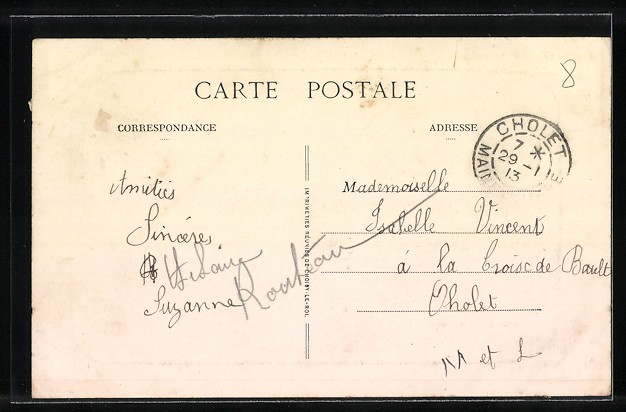 8
CARTE POSTALE
CORRESPONDANCE
ADRESSE
CHOLET
7 *
29 -1
13
MAI
Amitiés
Sincères
Hilaire
Suzanne
Mademoiselle
Isabelle Vincent
à la Croix de Bault
Cholet
M et L
IMPRIMERIES RÉUNIES DE CHOISY-LE-ROI.